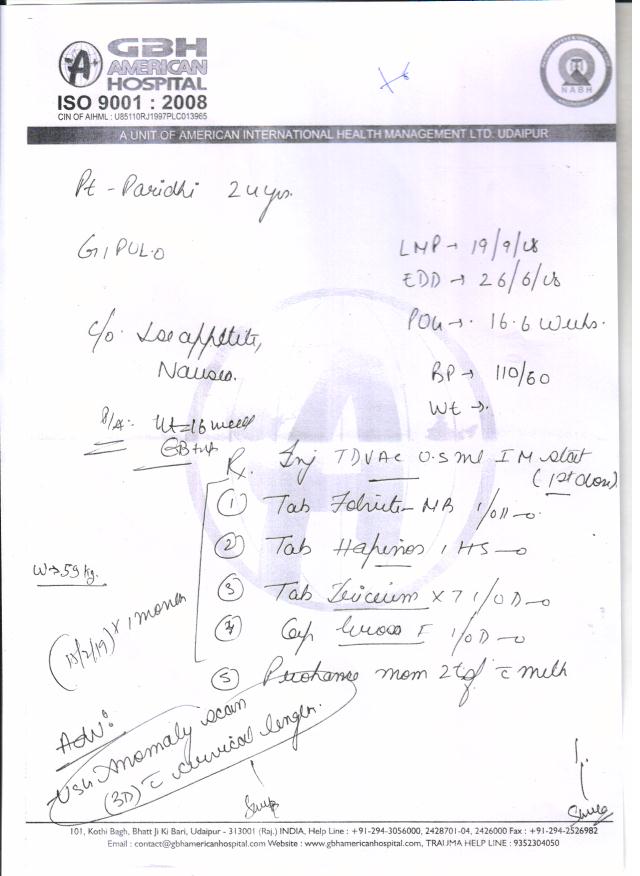 GBH
AMERICAN
HOSPITAL
ISO 9001 : 2008
CIN OF AIHML : U85110RJ1997PLC013965
NABH
A UNIT OF AMERICAN INTERNATIONAL HEALTH MANAGEMENT LTD. UDAIPUR
Pt - Paridhi 24 yrs.
G1 P0L0
LMP → 19/9/18
EDD → 26/6/18
POG → 16.6 weeks.
c/o. Loss appetite,
Nausea.
BP → 110/60
Wt →
P/A:- Ut = 16 week
Rx. Inj TDVAC 0.5 ml IM stat
(1st dose)
① Tab MB 1/OD
② Tab 1 HS
W → 59 kg.
③ Tab x 7 1/OD
④ Cap 1/OD
(13/2/19) x 1 month
⑤ mom 2 tsf c milk
Adv:
USG Anomaly scan
(3D) c cervical length.
101, Kothi Bagh, Bhatt Ji Ki Bari, Udaipur - 313001 (Raj.) INDIA, Help Line : +91-294-3056000, 2428701-04, 2426000 Fax : +91-294-2526982
Email : contact@gbhamericanhospital.com Website : www.gbhamericanhospital.com, TRAUMA HELP LINE : 9352304050